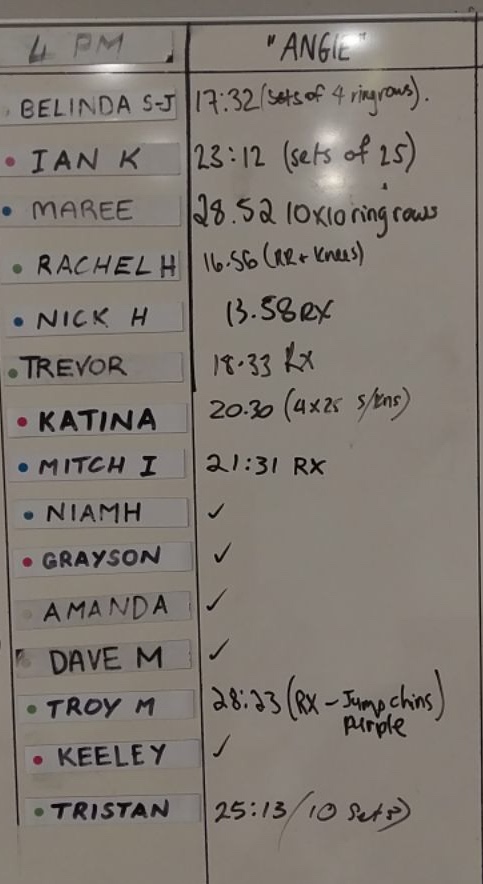 4 PM "ANGIE"
BELINDA S-J 17:32 (sets of 4 ring rows).
IAN K 23:12 (sets of 25)
MAREE 28.52 10x10 ring rows
RACHEL H 16.56 (RR + Knees)
NICK H 13.58 RX
TREVOR 18.33 RX
KATINA 20.30 (4x25 s/kns)
MITCH I 21:31 RX
NIAMH ✓
GRAYSON ✓
AMANDA ✓
DAVE M ✓
TROY M 28:23 (RX - Jump chins)
purple
KEELEY ✓
TRISTAN 25:13 / 10 sets)